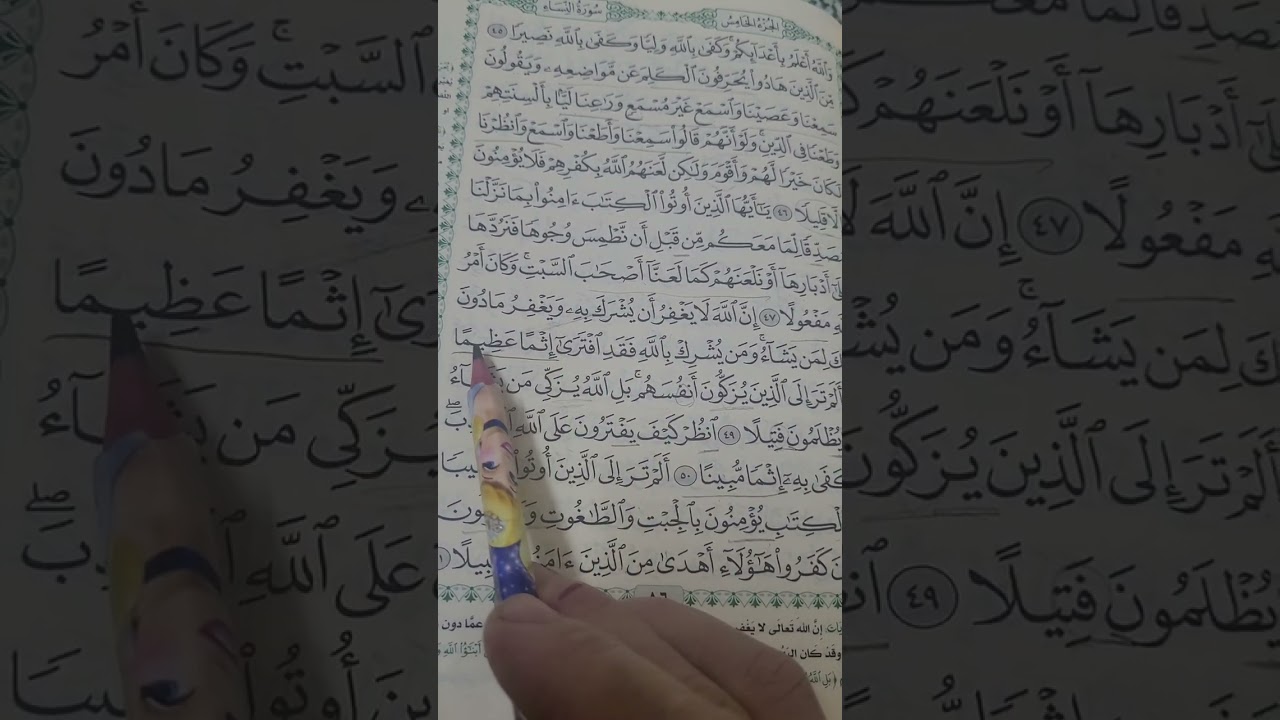 الجزء الخامس
سورة النساء
وَٱللَّهُ أَعْلَمُ بِأَعْدَآئِكُمْ وَكَفَىٰ بِٱللَّهِ وَلِيًّا وَكَفَىٰ بِٱللَّهِ نَصِيرًا ٤٥
مِّنَ ٱلَّذِينَ هَادُوا۟ يُحَرِّفُونَ ٱلْكَلِمَ عَن مَّوَاضِعِهِۦ وَيَقُولُونَ
سَمِعْنَا وَعَصَيْنَا وَٱسْمَعْ غَيْرَ مُسْمَعٍ وَرَٰعِنَا لَيًّۢا بِأَلْسِنَتِهِمْ
وَطَعْنًا فِى ٱلدِّينِ ۚ وَلَوْ أَنَّهُمْ قَالُوا۟ سَمِعْنَا وَأَطَعْنَا وَٱسْمَعْ وَٱنظُرْنَا
لَكَانَ خَيْرًا لَّهُمْ وَأَقْوَمَ وَلَٰكِن لَّعَنَهُمُ ٱللَّهُ بِكُفْرِهِمْ فَلَا يُؤْمِنُونَ
إِلَّا قَلِيلًا ٤٦ يَٰٓأَيُّهَا ٱلَّذِينَ أُوتُوا۟ ٱلْكِتَٰبَ ءَامِنُوا۟ بِمَا نَزَّلْنَا
مُصَدِّقًا لِّمَا مَعَكُم مِّن قَبْلِ أَن نَّطْمِسَ وُجُوهًا فَنَرُدَّهَا
عَلَىٰٓ أَدْبَارِهَآ أَوْ نَلْعَنَهُمْ كَمَا لَعَنَّآ أَصْحَٰبَ ٱلسَّبْتِ ۚ وَكَانَ أَمْرُ
ٱللَّهِ مَفْعُولًا ٤٧ إِنَّ ٱللَّهَ لَا يَغْفِرُ أَن يُشْرَكَ بِهِۦ وَيَغْفِرُ مَا دُونَ
ذَٰلِكَ لِمَن يَشَآءُ ۚ وَمَن يُشْرِكْ بِٱللَّهِ فَقَدِ ٱفْتَرَىٰٓ إِثْمًا عَظِيمًا
أَلَمْ تَرَ إِلَى ٱلَّذِينَ يُزَكُّونَ أَنفُسَهُم ۚ بَلِ ٱللَّهُ يُزَكِّى مَن يَشَآءُ
يُظْلَمُونَ فَتِيلًا ٤٩ ٱنظُرْ كَيْفَ يَفْتَرُونَ عَلَى ٱللَّهِ
كَفَىٰ بِهِۦٓ إِثْمًا مُّبِينًا ٥٠ أَلَمْ تَرَ إِلَى ٱلَّذِينَ أُوتُوا۟
ٱلْكِتَٰبِ يُؤْمِنُونَ بِٱلْجِبْتِ وَٱلطَّٰغُوتِ
كَفَرُوا۟ هَٰٓؤُلَآءِ أَهْدَىٰ مِنَ ٱلَّذِينَ
٨٦
إنَّ الله تعالى لا يغفر
عمَّا دون
وقد كان